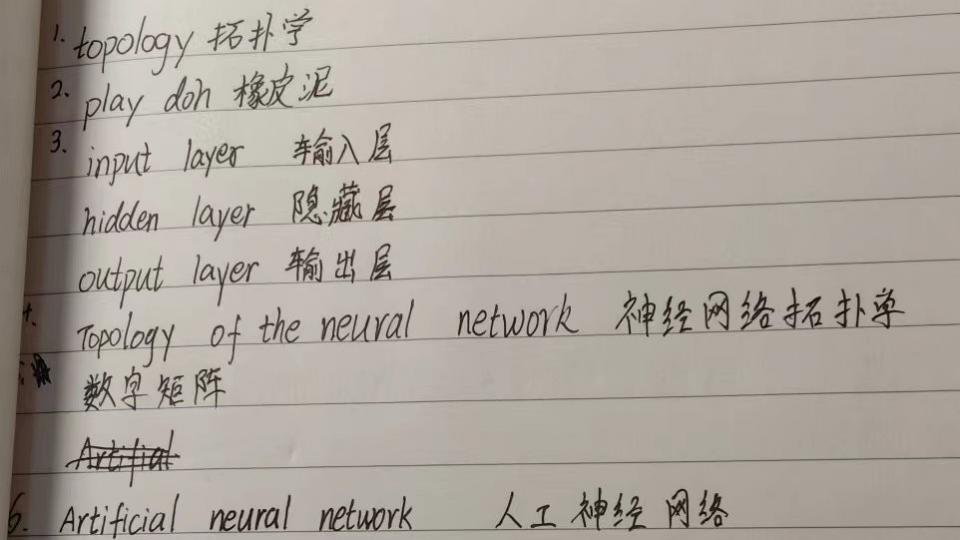 1. topology 拓扑学
2. play doh 橡皮泥
3. input layer 输入层
hidden layer 隐藏层
output layer 输出层
Topology of the neural network 神经网络拓扑学
数字矩阵
Artifial
6. Artificial neural network 人工神经网络